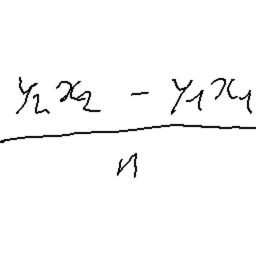 y₂x₂ - y₁x₁
n